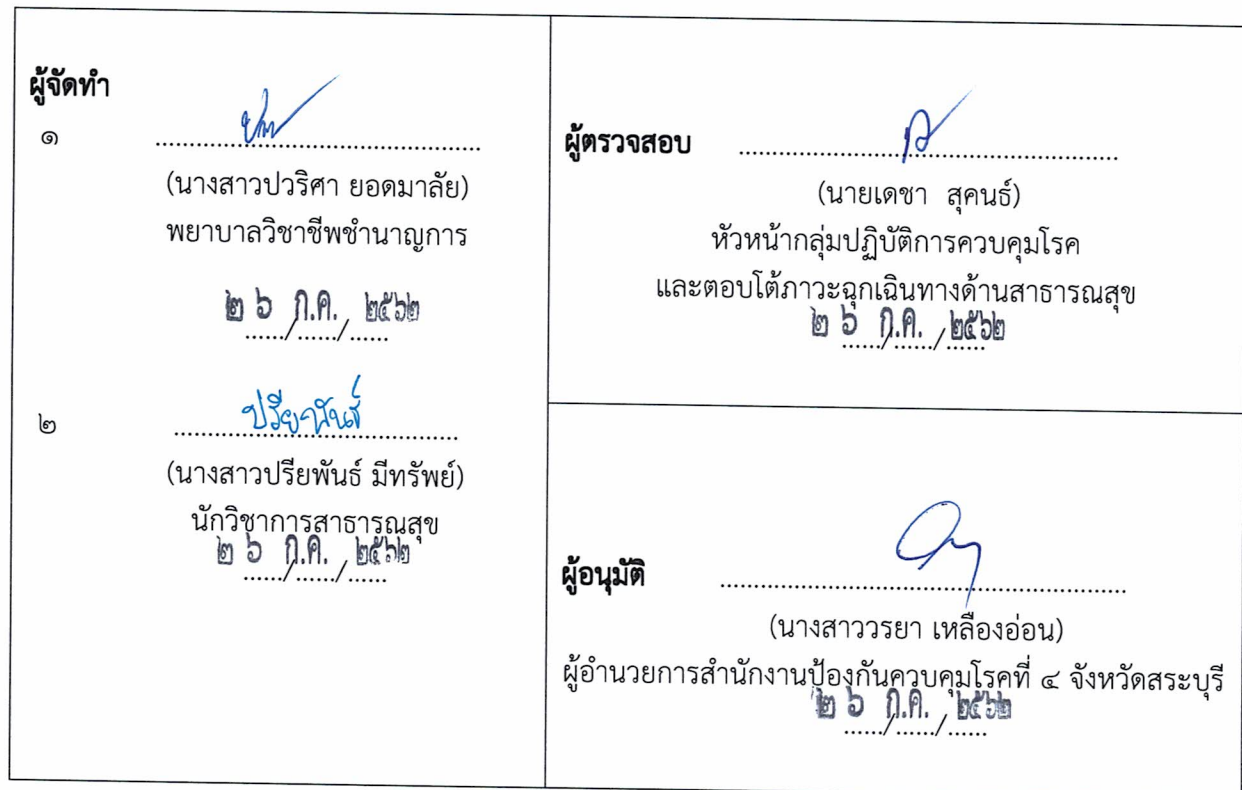 ผู้จัดทำ
๑ ........................................
(นางสาวปวริศา ยอดมาลัย)
พยาบาลวิชาชีพชำนาญการ
๒ ๖ ก.ค. ๒๕๖๒
....../....../......
๒ ปรียาพันธ์
(นางสาวปรียพันธ์ มีทรัพย์)
นักวิชาการสาธารณสุข
๒ ๖ ก.ค. ๒๕๖๒
....../....../......
ผู้ตรวจสอบ ........................................
(นายเดชา สุคนธ์)
หัวหน้ากลุ่มปฏิบัติการควบคุมโรค
และตอบโต้ภาวะฉุกเฉินทางด้านสาธารณสุข
๒ ๖ ก.ค. ๒๕๖๒
....../....../......
ผู้อนุมัติ ........................................
(นางสาววรยา เหลืองอ่อน)
ผู้อำนวยการสำนักงานป้องกันควบคุมโรคที่ ๔ จังหวัดสระบุรี
๒ ๖ ก.ค. ๒๕๖๒
....../....../......